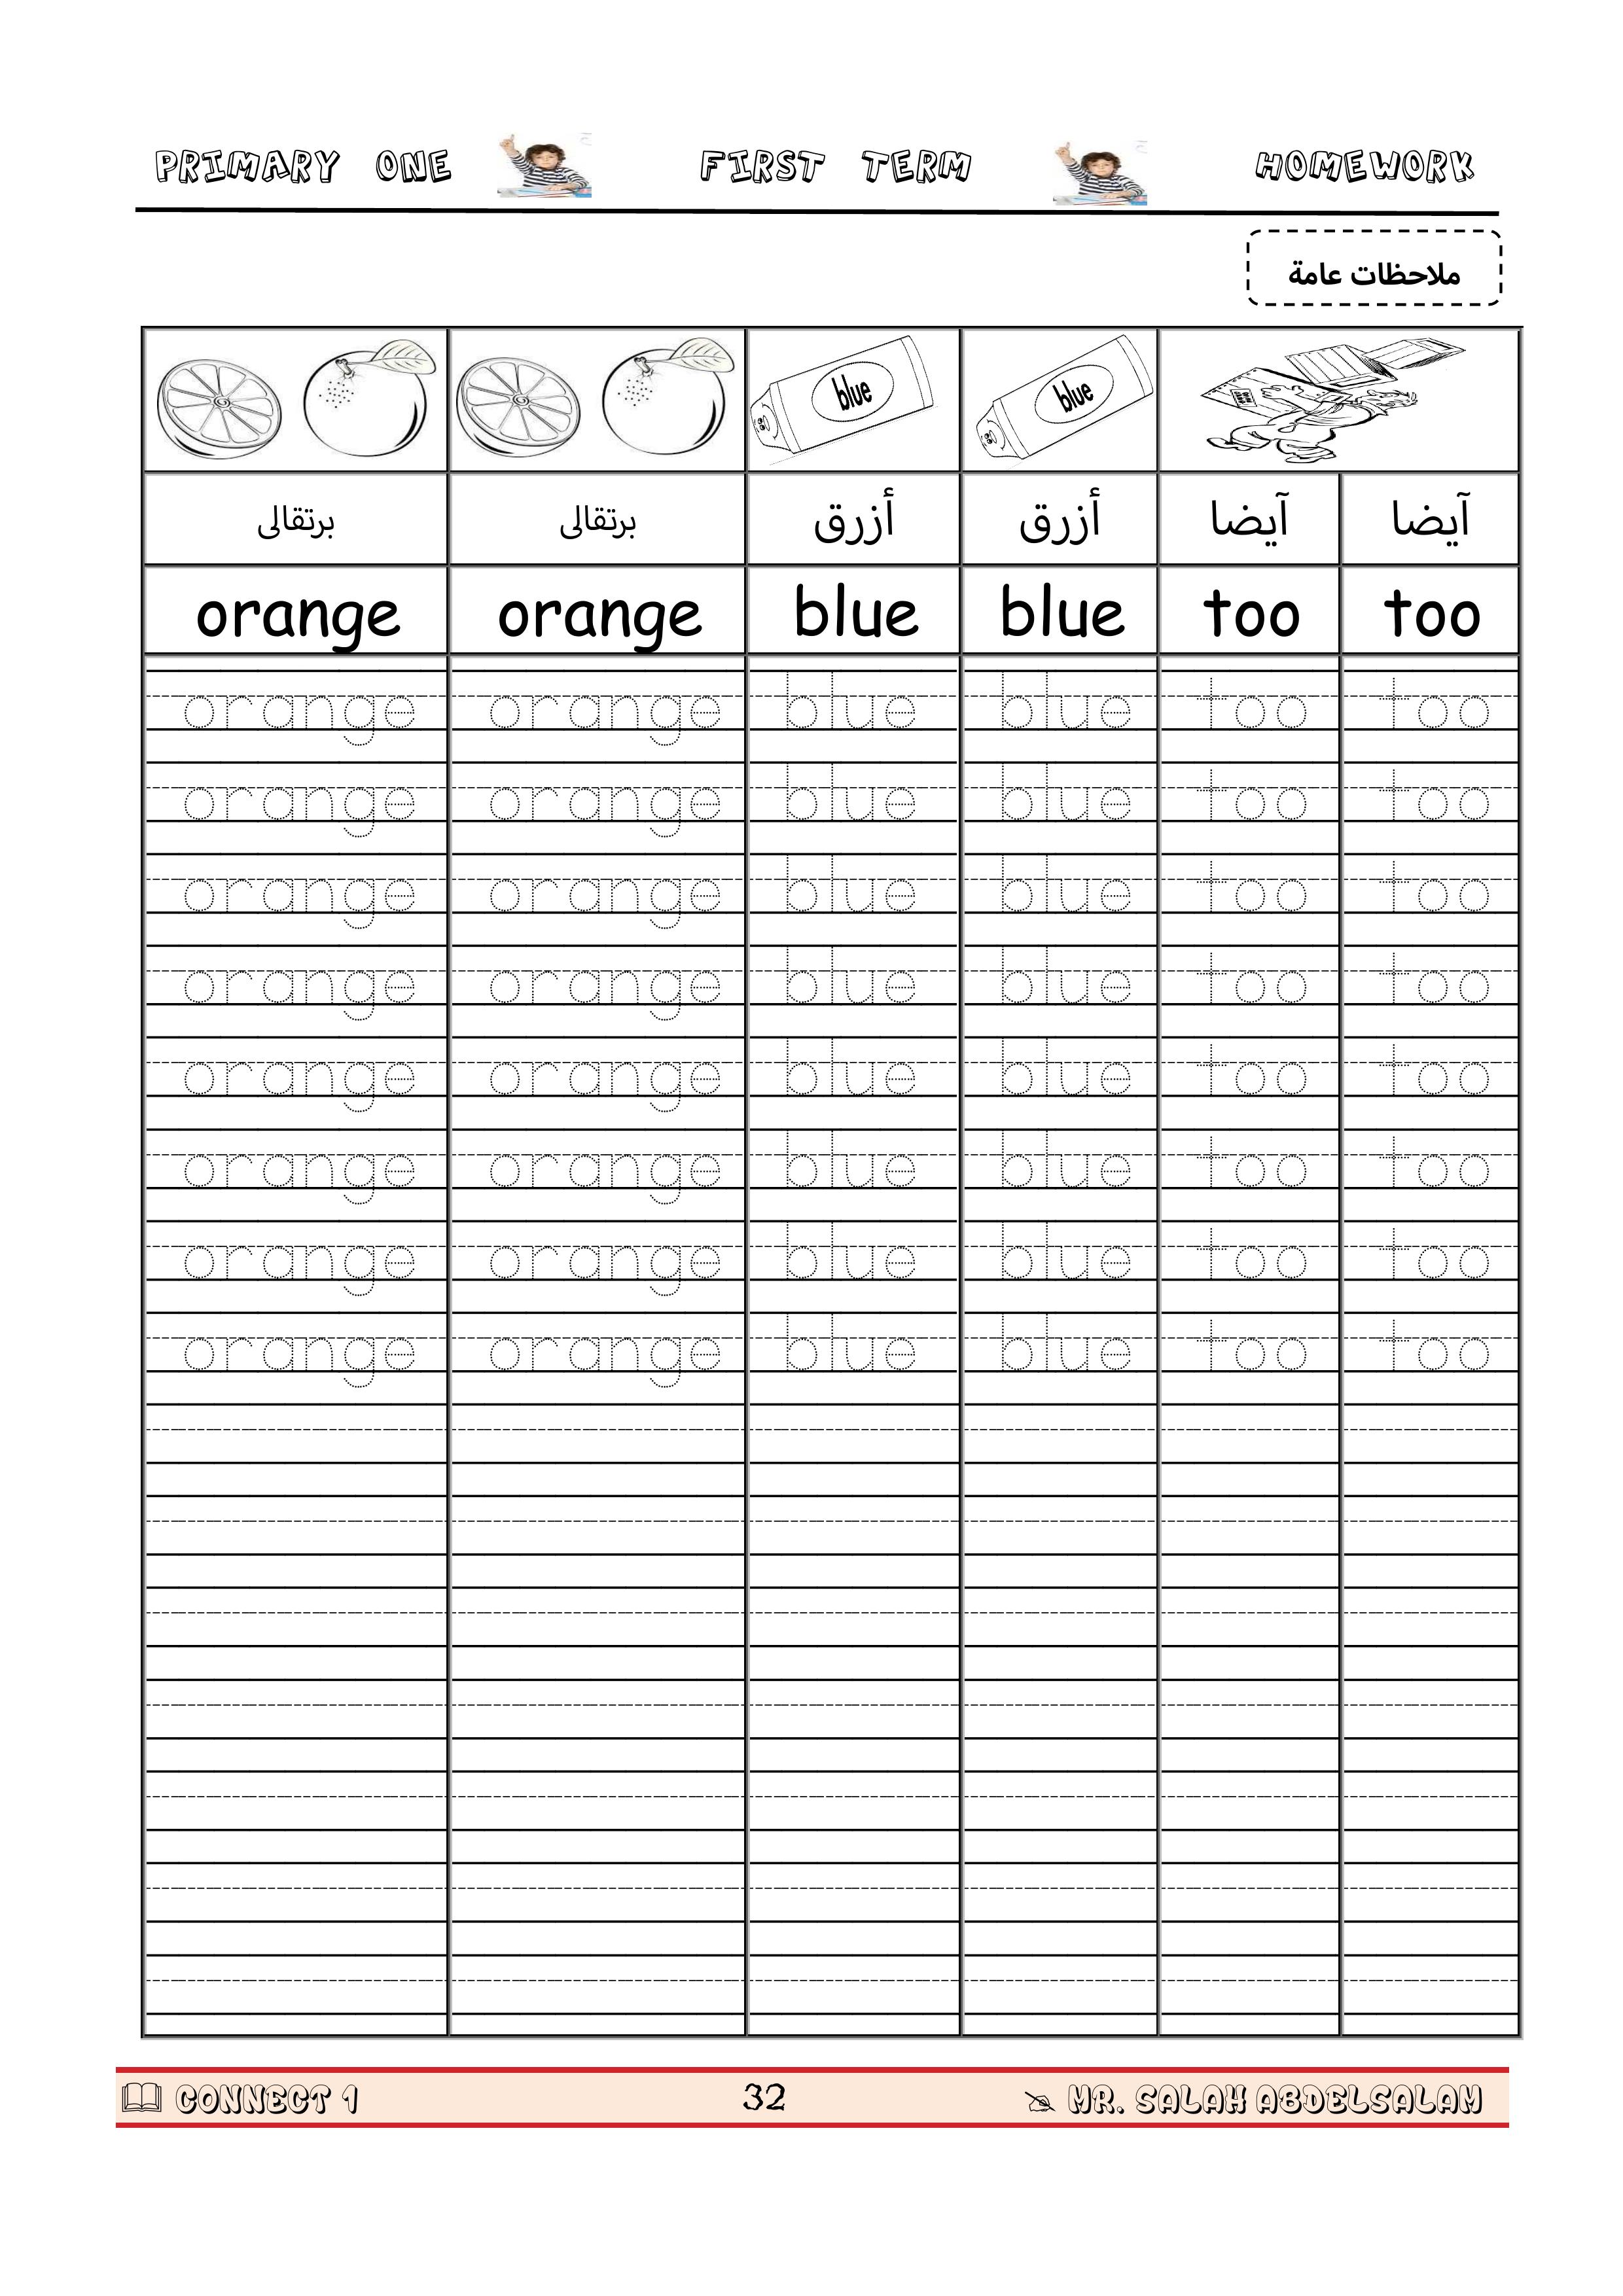 PRIMARY ONE FIRST TERM HOMEWORK
ملاحظات عامة
blue blue
برتقالى برتقالى أزرق أزرق آيضا آيضا
orange orange blue blue too too
orange orange blue blue too too
orange orange blue blue too too
orange orange blue blue too too
orange orange blue blue too too
orange orange blue blue too too
orange orange blue blue too too
orange orange blue blue too too
orange orange blue blue too too
CONNECT 1 32 MR. SALAH ABDELSALAM